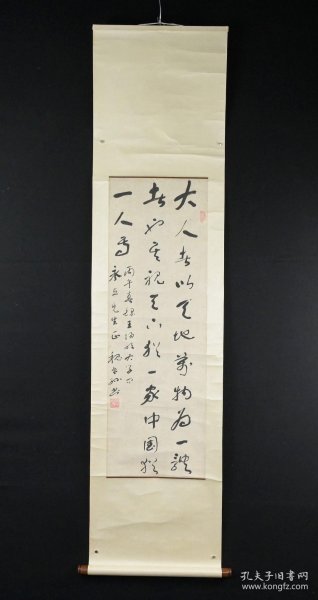 大人者以天地萬物為一體
者也其視天下猶一家中国猶
一人焉
丙午春錄王陽明大學問
永立先生正
孔夫子旧书网
www.kongfz.com